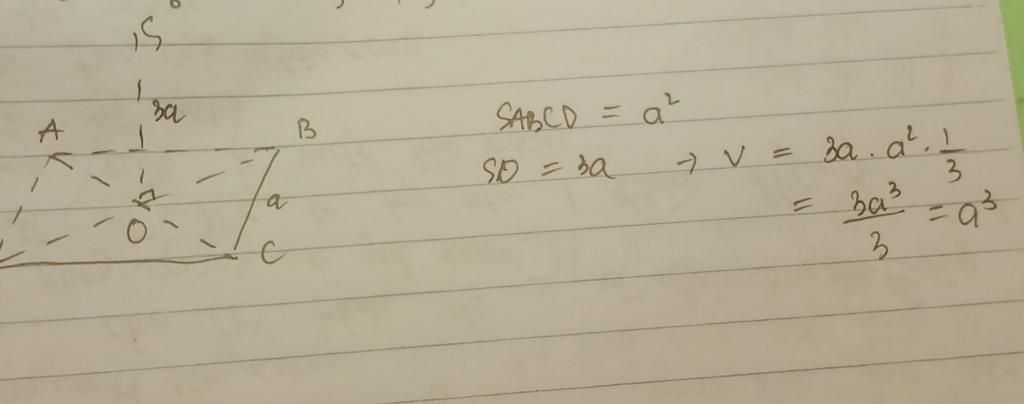 S
3a
A
B
a
O
C
SABCD = a²
SO = 3a → V = 3a . a² . 1/3
= 3a³/3 = a³